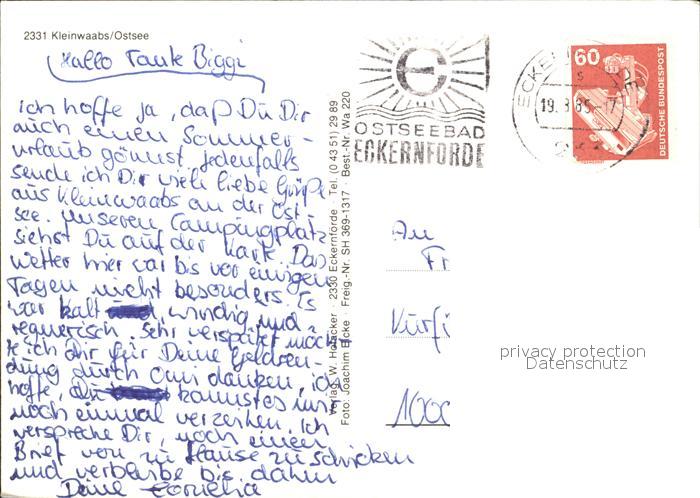 2331 Kleinwaabs/Ostsee
Hallo Tante Biggi
ich hoffe ja, daß Du Dir
auch einen Sommer-
urlaub gönnst, jedenfalls
sende ich Dir viele liebe Grüße
aus Kleinwaabs an der Ost-
see. Unseren Campingplatz
siehst Du auf der Karte. Das
Wetter hier war bis vor einigen
Tagen nicht besonders. Es
war kalt windig und
regnerisch. Sehr verspätet möch-
te ich Dir für Deine
durch Omi danken, ich
hoffe, Du kannst es mir
noch einmal verzeihen. Ich
verspreche Dir, noch einen
Brief von zu Hause zu schicken
und verbleibe bis dahin
Deine Cornelia
Verlag W. Hofacker · 2330 Eckernförde · Tel. (0 43 51) 29 89
Foto: Joachim Eicke · Freig.-Nr. SH 369-1317 · Best.-Nr. Wa 220
OSTSEEBAD
ECKERNFÖRDE
19.8.85-17
60
DEUTSCHE BUNDESPOST
An
Fr
Kurfü
1000
privacy protection
Datenschutz